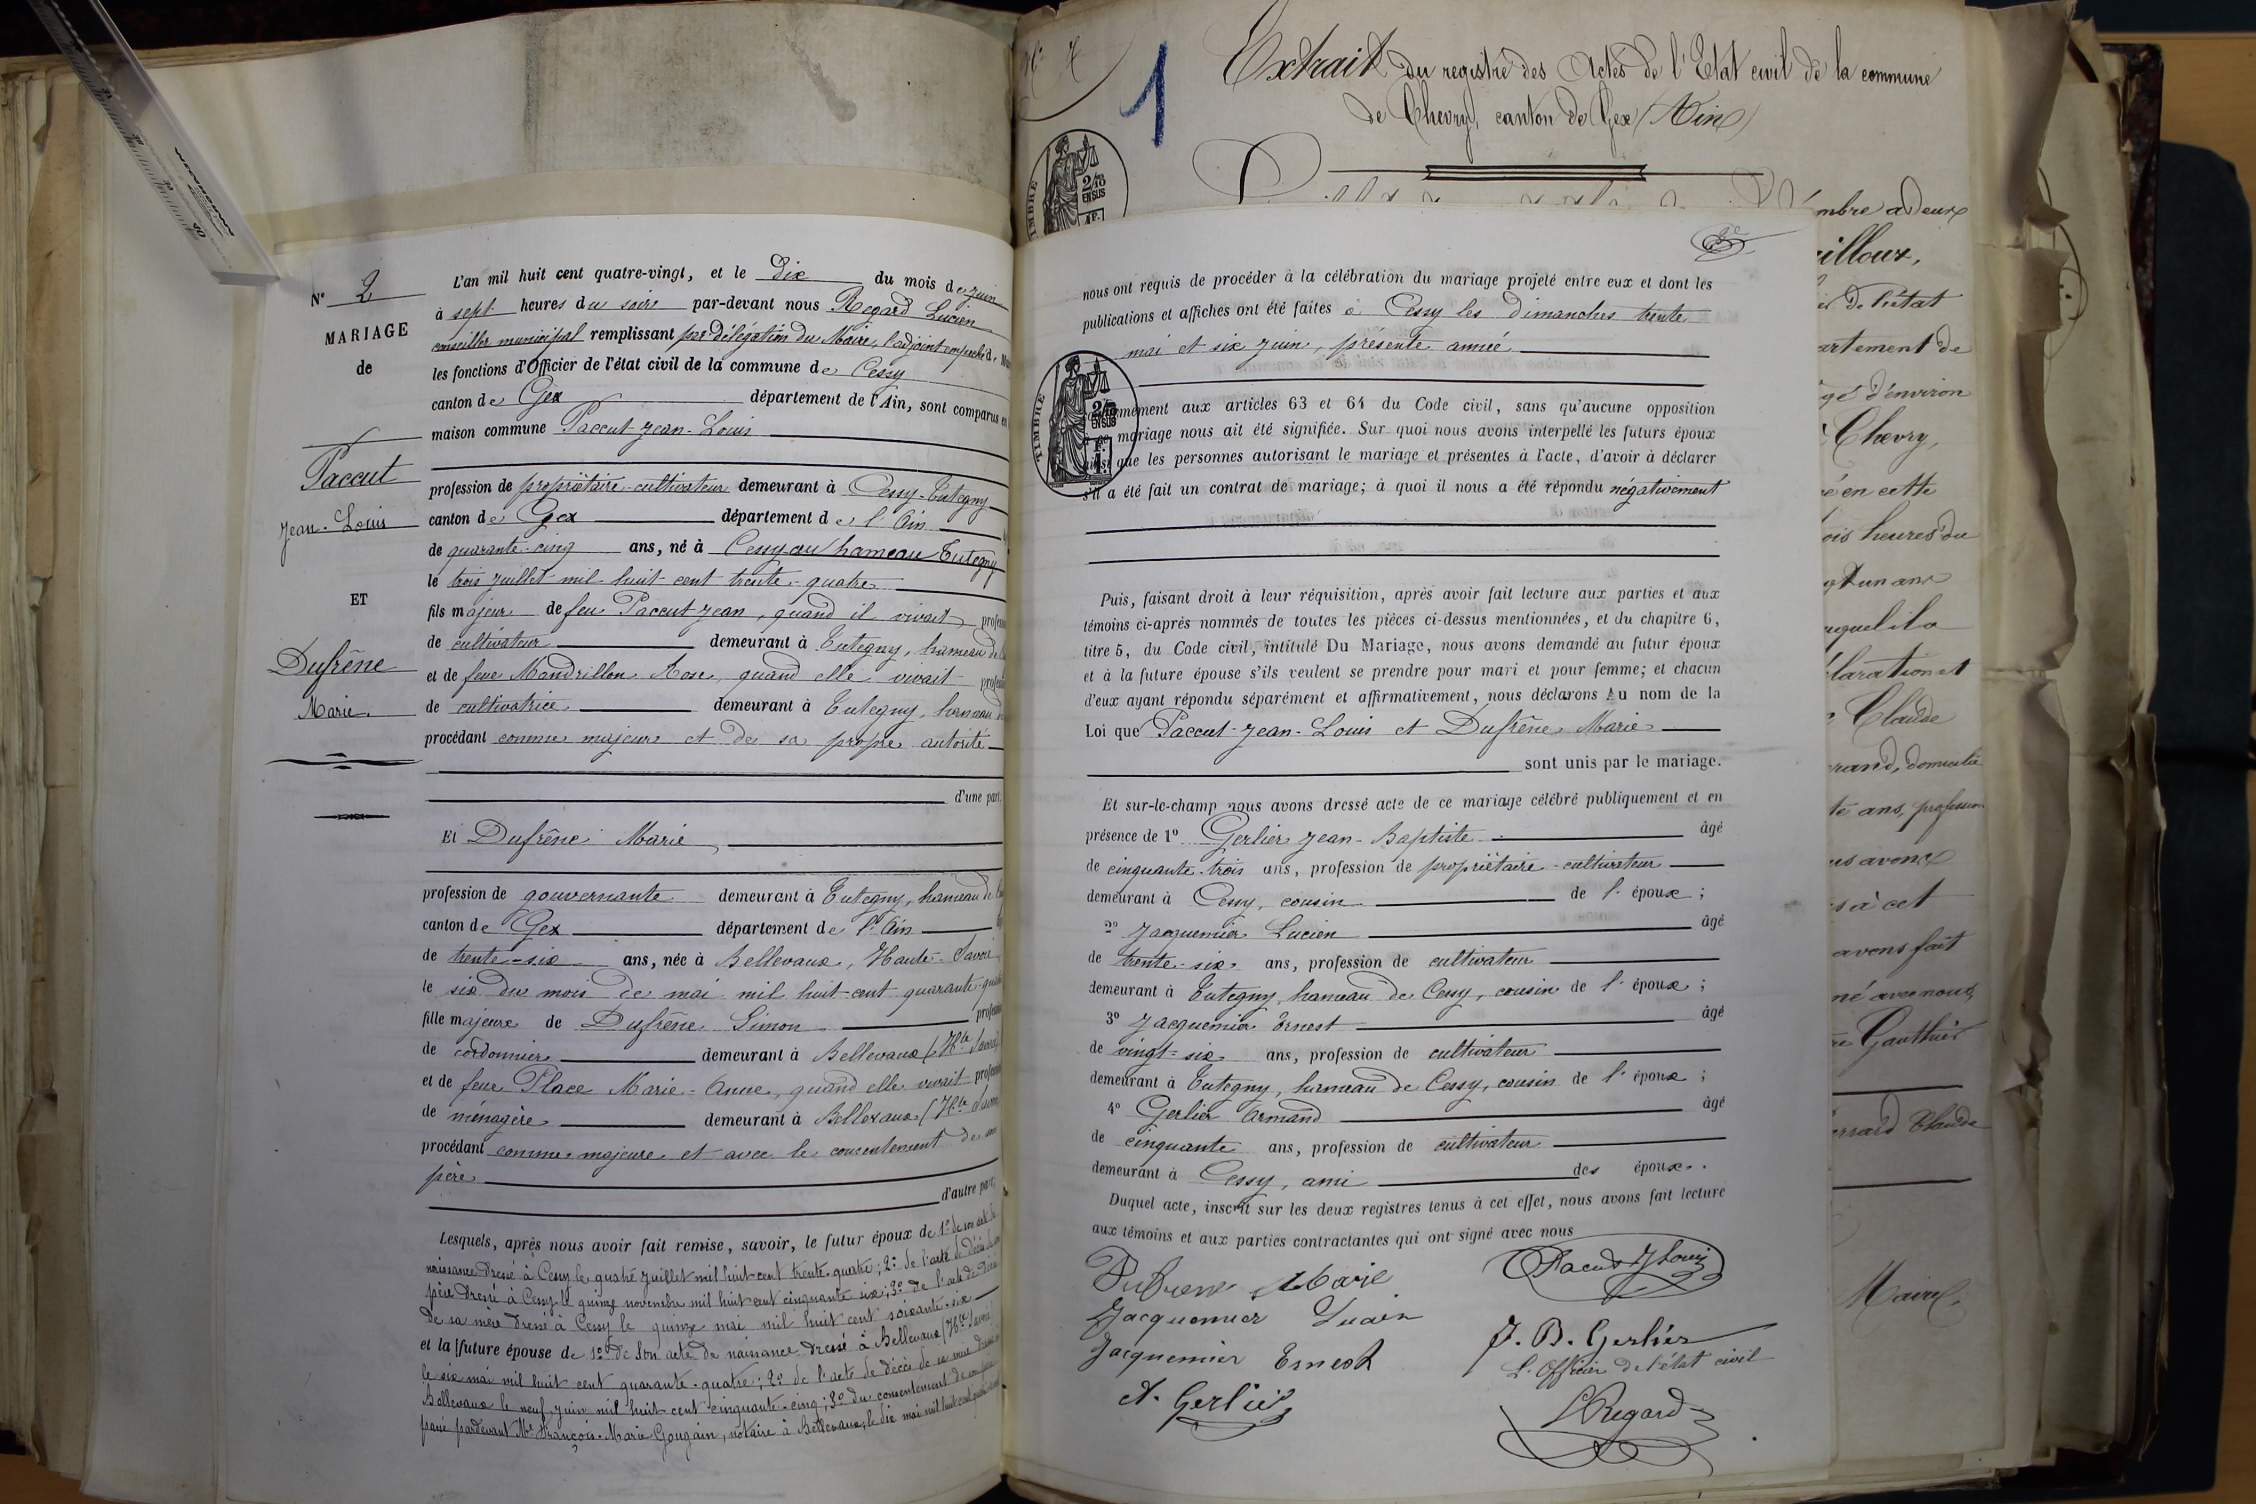 N° 2
MARIAGE
de
Paccut
Jean-Louis
ET
Dufrêne
Marie.
L'an mil huit cent quatre-vingt, et le dix du mois de juin
à sept heures du soir par-devant nous Regard Lucien
conseiller municipal remplissant par délégation du Maire, l'adjoint empêché
les fonctions d'Officier de l'état civil de la commune de Cessy
canton de Gex département de l'Ain, sont comparus en
maison commune Paccut Jean-Louis
profession de propriétaire-cultivateur demeurant à Cessy-Tutegny
canton de Gex département de l'Ain
de quarante-cinq ans, né à Cessy au hameau Tutegny
le trois juillet mil-huit-cent trente-quatre
fils majeur de feu Paccut Jean, quand il vivait
de cultivateur demeurant à Tutegny, hameau de
et de feue Mandrillon Rose, quand elle vivait
de cultivatrice demeurant à Tutegny, hameau
procédant comme majeur et de sa propre autorité
d'une part,
Et Dufrêne Marie
profession de gouvernante demeurant à Tutegny, hameau de
canton de Gex département de l'Ain
de trente-six ans, née à Bellevaux, Haute-Savoie
le six du mois de mai mil huit-cent quarante-
fille majeure de Dufrêne Simon
de cordonnier demeurant à Bellevaux (Hte Savoie)
et de feue Place Marie-Anne, quand elle vivait
de ménagère demeurant à Bellevaux (Hte Savoie
procédant comme majeure et avec le consentement de son
père
d'autre part,
Lesquels, après nous avoir fait remise, savoir, le futur époux de 1° de son acte de
naissance dressé à Cessy le quatre juillet mil huit cent trente-quatre; 2° de l'acte de décès de son
père dressé à Cessy le quinze novembre mil huit cent cinquante six; 3° de l'acte de décès
de sa mère dressé à Cessy le quinze mai mil huit cent soixante-six
et la future épouse de 1° de son acte de naissance dressé à Bellevaux (Hte Savoie)
le six mai mil huit cent quarante-quatre; 2° de l'acte de décès de sa mère dressé à
Bellevaux le neuf juin mil huit cent cinquante-cinq; 3° du consentement de son père
passé pardevant Me François-Marie Gougain, notaire à Bellevaux, le dix mai mil huit cent
N° 7
1
Extrait du registre des Actes de l'Etat civil de la commune
de Chevry, canton de Gex (Ain)
TIMBRE
2/10
EN SUS
nous ont requis de procéder à la célébration du mariage projeté entre eux et dont les
publications et affiches ont été faites à Cessy les dimanches trente
mai et six juin, présente année
TIMBRE
2/10
EN SUS
1F.
aux articles 63 et 64 du Code civil, sans qu'aucune opposition
mariage nous ait été signifiée. Sur quoi nous avons interpellé les futurs époux
ainsi que les personnes autorisant le mariage et présentes à l'acte, d'avoir à déclarer
s'il a été fait un contrat de mariage; à quoi il nous a été répondu négativement
Puis, faisant droit à leur réquisition, après avoir fait lecture aux parties et aux
témoins ci-après nommés de toutes les pièces ci-dessus mentionnées, et du chapitre 6,
titre 5, du Code civil, intitulé Du Mariage, nous avons demandé au futur époux
et à la future épouse s'ils veulent se prendre pour mari et pour femme; et chacun
d'eux ayant répondu séparément et affirmativement, nous déclarons Au nom de la
Loi que Paccut-Jean-Louis et Dufrêne Marie
sont unis par le mariage.
Et sur-le-champ nous avons dressé acte de ce mariage célébré publiquement et en
présence de 1° Gerlier Jean-Baptiste âgé
de cinquante-trois ans, profession de propriétaire-cultivateur
demeurant à Cessy, cousin de l'époux;
2° Jacquemier Lucien âgé
de trente-six ans, profession de cultivateur
demeurant à Tutegny, hameau de Cessy, cousin de l'époux;
3° Jacquemier Ernest âgé
de vingt-six ans, profession de cultivateur
demeurant à Tutegny, hameau de Cessy, cousin de l'époux;
4° Gerlier Armand âgé
de cinquante ans, profession de cultivateur
demeurant à Cessy, ami des époux.
Duquel acte, inscrit sur les deux registres tenus à cet effet, nous avons fait lecture
aux témoins et aux parties contractantes qui ont signé avec nous
Dufrene Marie
Pacut J Louis
Jacquemier Lucien
J. B. Gerlier
Jacquemier Ernest
L'Officier de l'état civil
A. Gerlier
L Regard
mbre a deux
illoux,
de l'état
artement de
gé d'environ
Chevry,
é en cette
ois heures du
gt un ans
uquel il a
claration et
Claude
rand, domicilié
te ans, profession
us avons
s à cet
avons fait
né avec nous,
Gauthier
Claude
Maire.